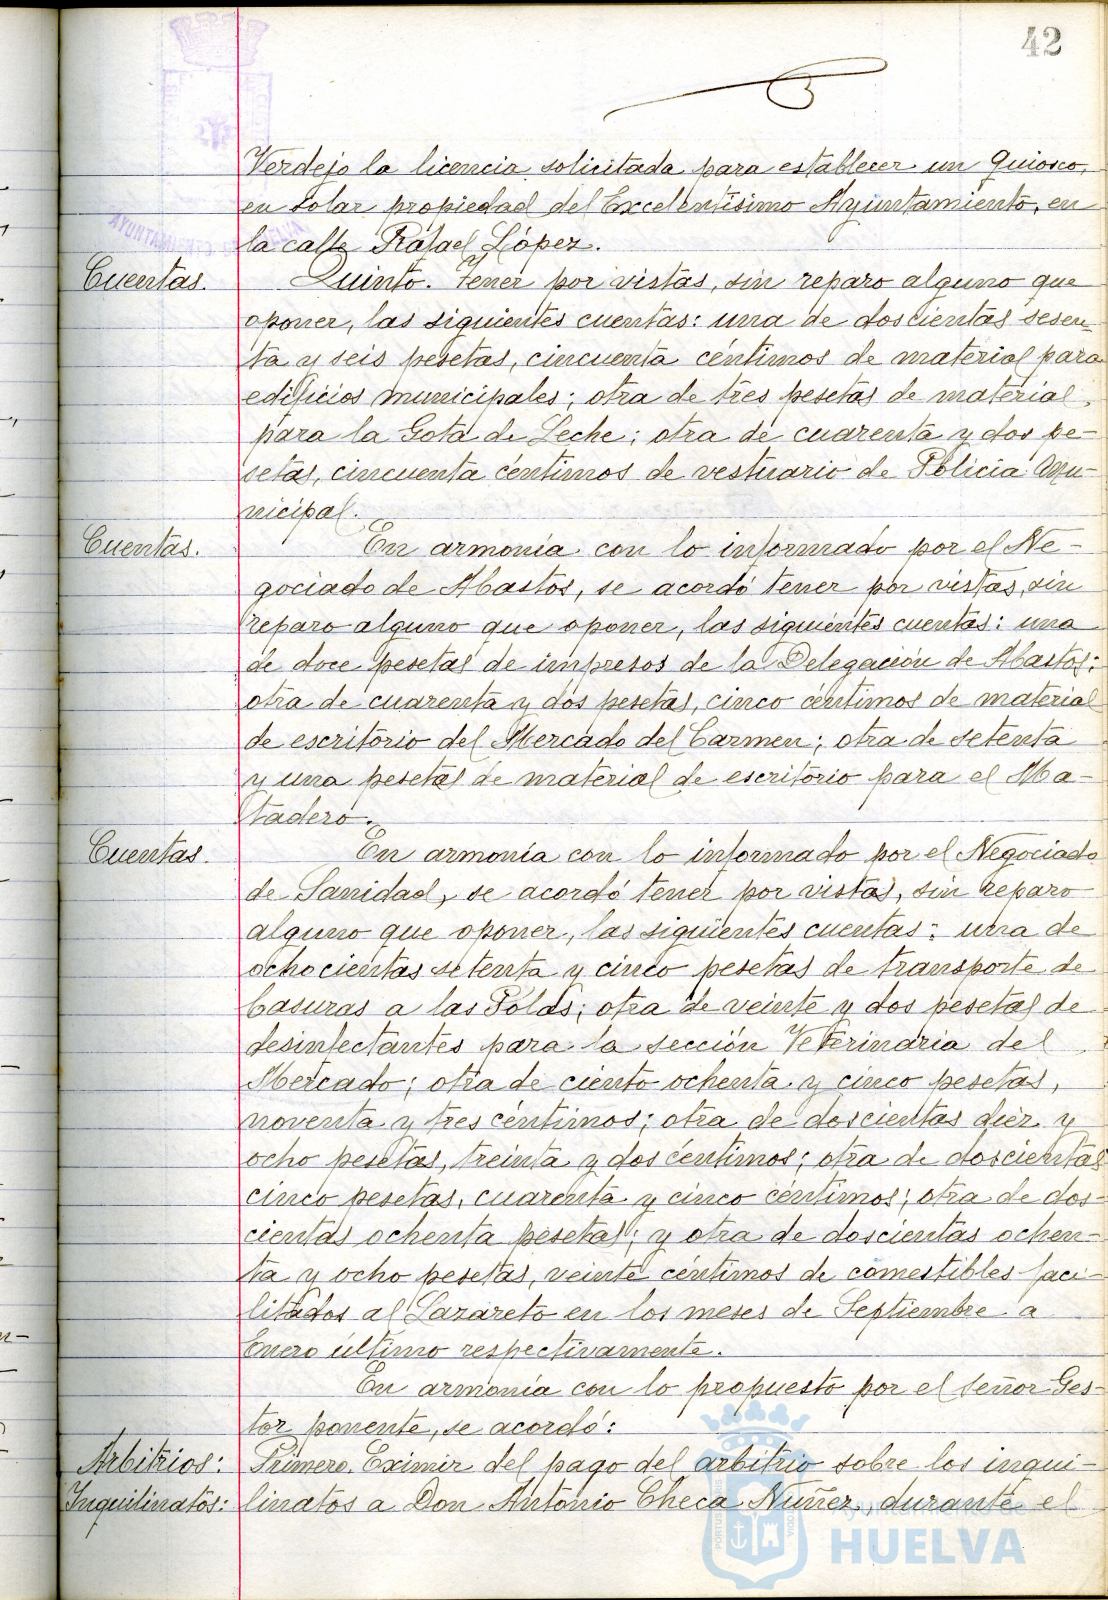 42
Verdejo la licencia solicitada para establecer un quiosco,
en solar propiedad del Excelentísimo Ayuntamiento, en
la calle Ráfael López.
Cuentas. Quinto. Tener por vistas, sin reparo alguno que
oponer, las siguientes cuentas: una de doscientas sesen-
ta y seis pesetas, cincuenta céntimos de material para
edificios municipales; otra de tres pesetas de material,
para la Gota de Leche; otra de cuarenta y dos pe-
setas, cincuenta céntimos de vestuario de Policia Mu-
nicipal.
Cuentas. En armonía con lo informado por el Ne-
gociado de Abastos, se acordó tener por vistas, sin
reparo alguno que oponer, las siguientes cuentas: una
de doce pesetas de impresos de la Delegación de Abastos;
otra de cuarenta y dós pesetas, cinco céntimos de material
de escritorio del Mercado del Carmen; otra de setenta
y una pesetas de material de escritorio para el Ma-
tadero.
Cuentas. En armonía con lo informado por el Negociado
de Sanidad, se acordó tener por vistas, sin reparo
alguno que oponer, las siguientes cuentas: una de
ochocientas setenta y cinco pesetas de transporte de
basuras a las Polas; otra de veinte y dos pesetas de
desinfectantes para la sección Veterinaria del
Mercado; otra de ciento ochenta y cinco pesetas,
noventa y tres céntimos; otra de doscientas diez y
ocho pesetas, treinta y dos céntimos; otra de doscientas
cinco pesetas, cuarenta y cinco céntimos; otra de dos-
cientas ochenta pesetas; y otra de doscientas ochen-
ta y ocho pesetas, veinte céntimos de comestibles faci-
litados al Lazareto en los meses de Septiembre a
Enero último respectivamente.
En armonía con lo propuesto por el señor Ges-
tor ponente, se acordó:
Arbitrios: Primero. Eximir del pago del arbitrio sobre los inqui-
Inquilinatos: linatos a Don Antonio Checa Nuñez, durante el
Ayuntamiento de
HUELVA